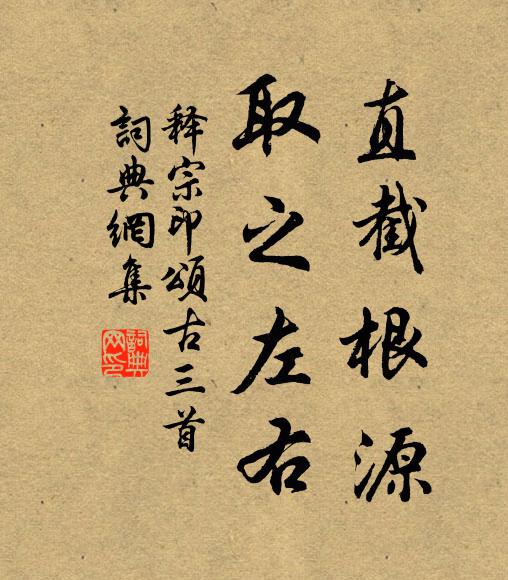 直截根源
取之左右
释宗印頌古三首
詞典網集
詞典网印